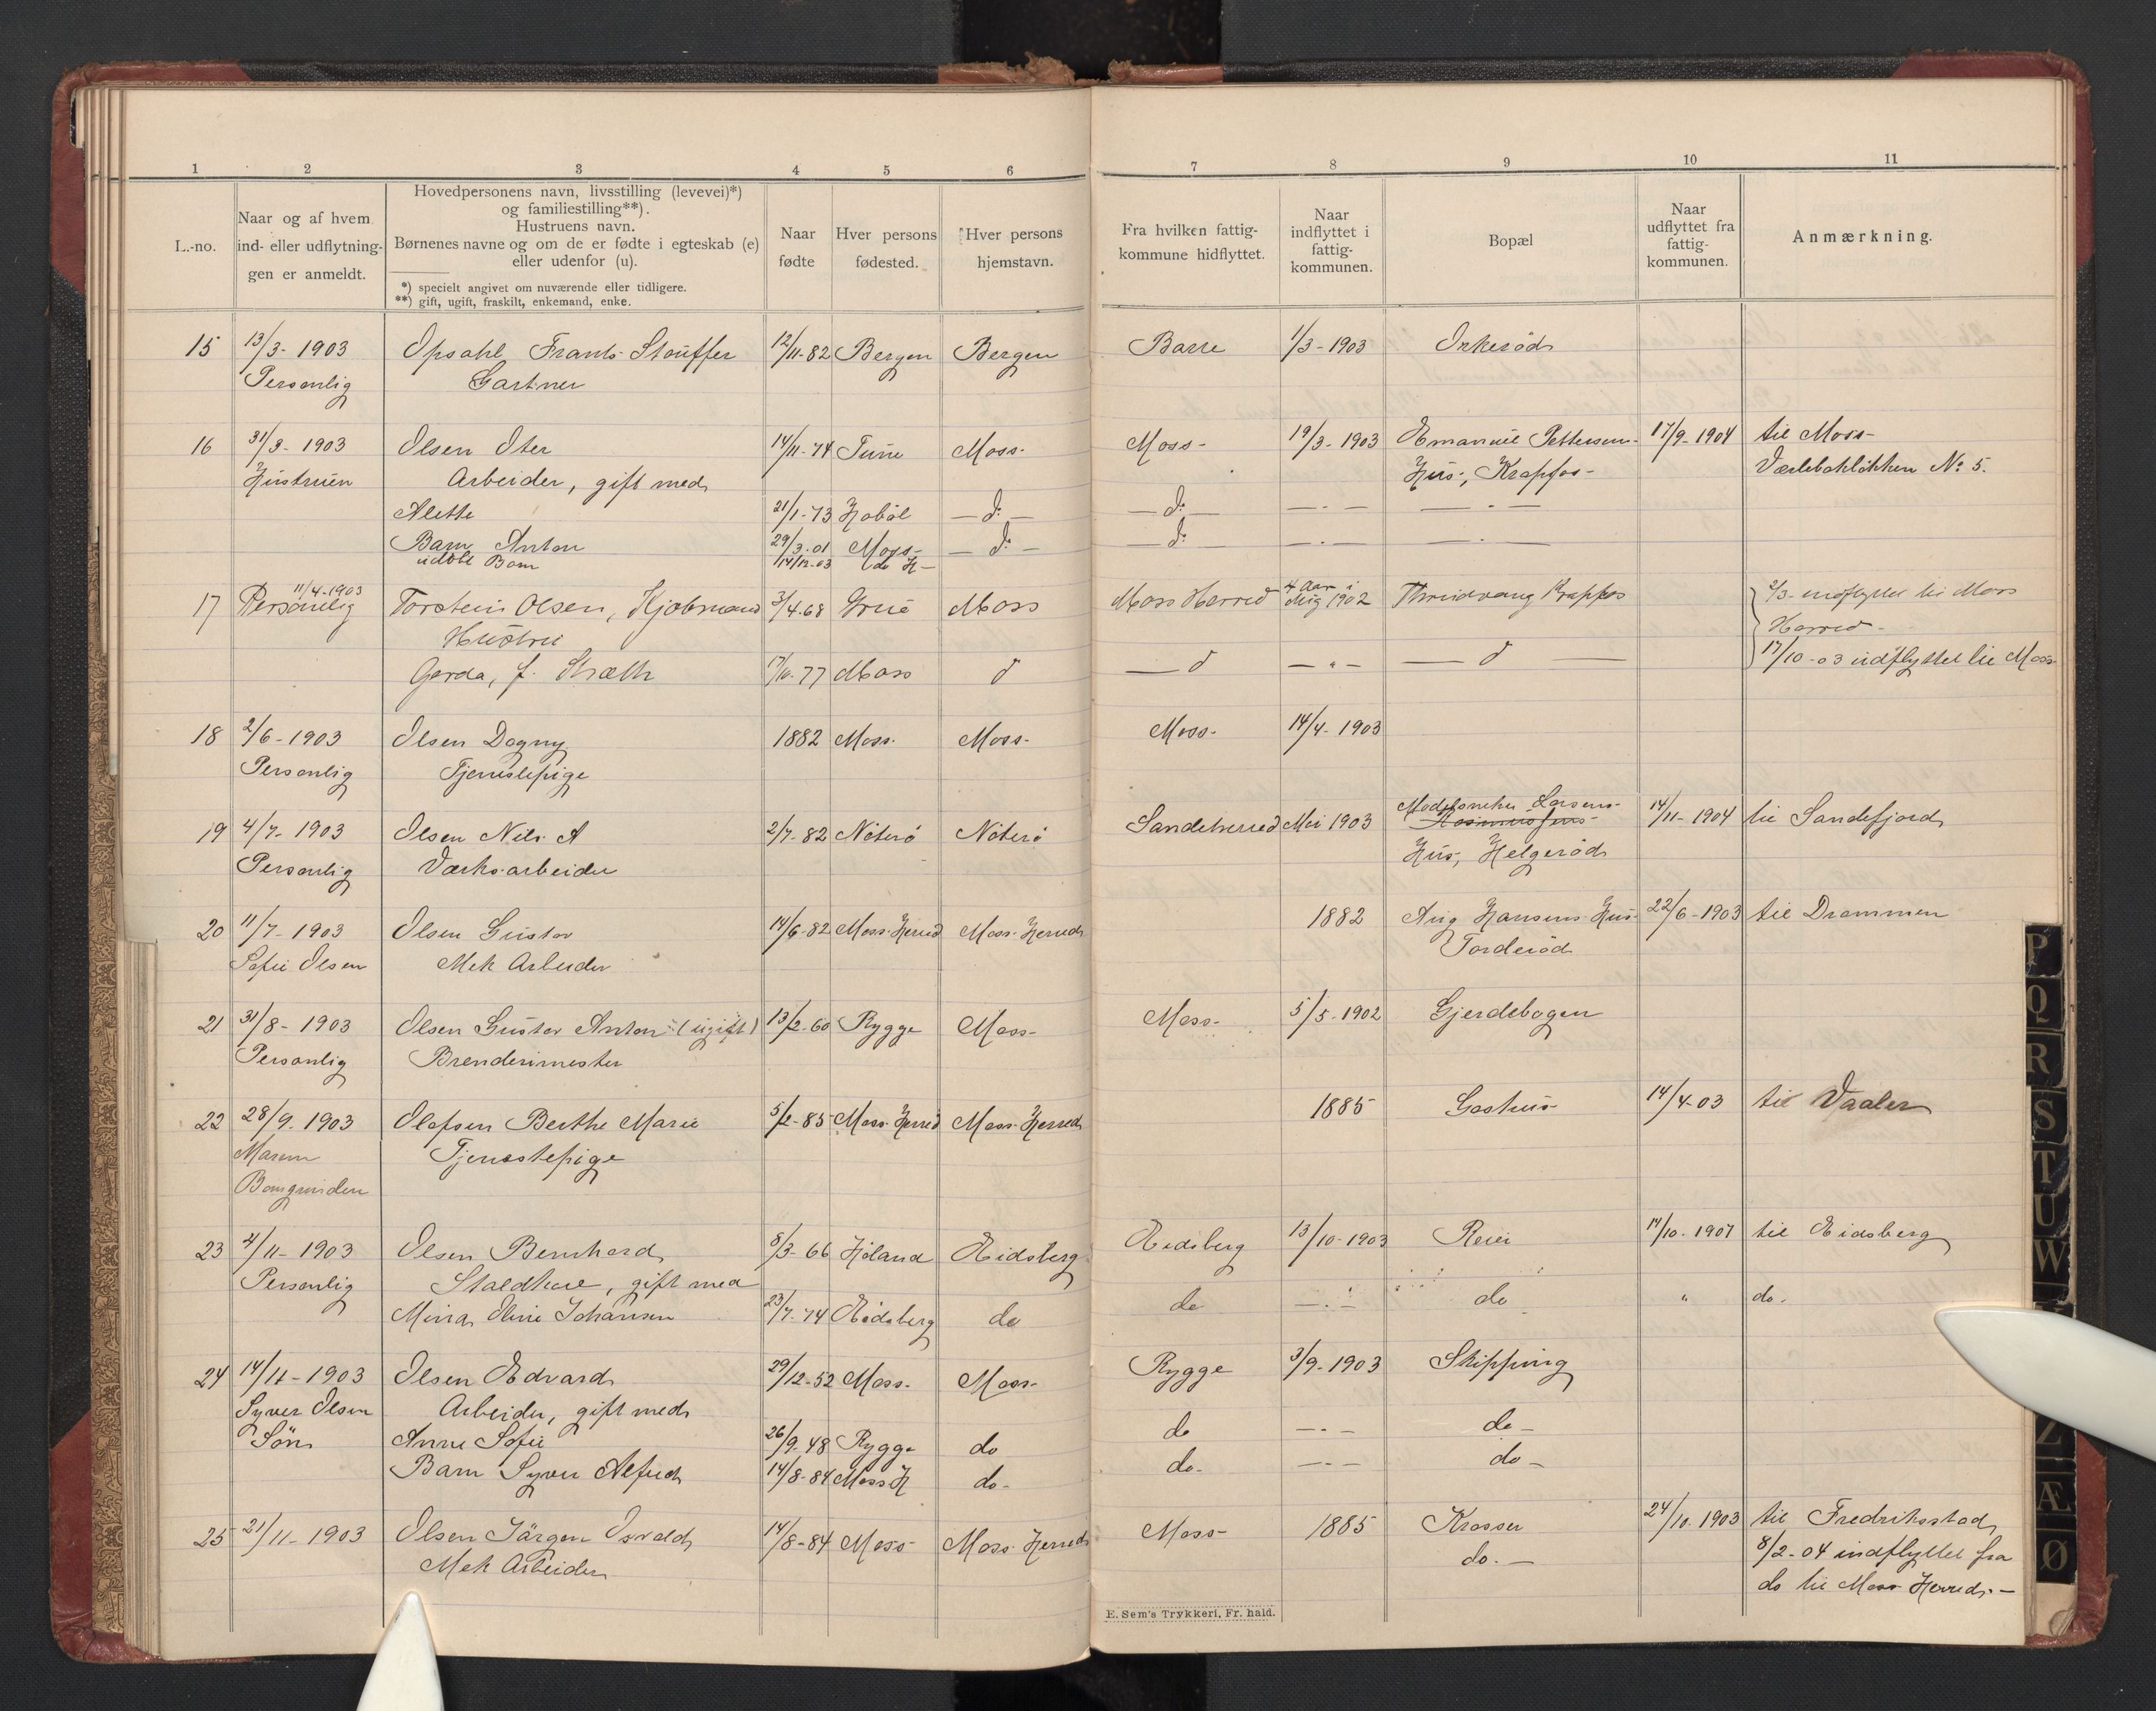 1 2 3 4 5 6 7 8 9 10 11
L.-no.
Naar og af hvem
ind- eller udflytnin-
gen er anmeldt.
Hovedpersonens navn, livsstilling (levevei)*)
og familiestilling**).
Hustruens navn.
Børnenes navne og om de er fødte i egteskab (e)
eller udenfor (u).
*) specielt angivet om nuværende eller tidligere.
**) gift, ugift, fraskilt, enkemand, enke.
Naar
fødte
Hver persons
fødested.
Hver persons
hjemstavn.
Fra hvilken fattig-
kommune hidflyttet.
Naar
indflyttet i
fattig-
kommunen.
Bopæl
Naar
udflyttet fra
fattig-
kommunen.
Anmærkning.
15 13/3- 1903 Opsahl, Frants Stouffer 12/11-82 Bergen Bergen Barre 1/3-1903 Orkerød
Personlig Gartner
16 31/3- 1903 Olsen Oter 14/11-74 Tune Moss- Moss- 19/3-1903 Emanuel Pettersens- 17/9-1904 til Moss-
Hustruen Arbeider, gift med Hus, Krapfos- Værlebakløkken No 5.
Alette 21/1-73 Hobøl — do — — do — — " — — " —
Barn Anton 29/3-01 Moss- — do — — do — — " — — " —
udøbt Barn 14/12-03 do H-
17 11/4-1903 Personlig Torstein Olsen, Kjøbmand 3/4-68 Grue Moss Moss Herred 4 Aar i Mig 1902 Thrudvang Krapfos 2/3- indflyttet til Moss
Hustru Herred-
Gerda, f. Stræth 17/10-77 Moss d — d — " — — d — 17/10-03 udflyttet til Moss
18 2/6-1903 Olsen Dagny 1882 Moss- Moss- Moss- 14/4-1903
Personlig Tjenestepige
19 4/7-1903 Olsen Nils A 2/7-82 Nøterø Nøterø Sandeherred Mai 1903 Larsens- 14/11-1904 til Sandefjord
Personlig Værksarbeider Hus, Helgerød
20 11/7-1903 Olsen Gustav 14/6-82 Moss Herred Moss Herred 1882 Aug Hansens Hus 22/6-1903 til Drammen
Sofie Olsen Mek Arbeider Torderød
21 31/8-1903 Olsen Gustav Anton (ugift) 13/2-60 Rygge Moss- Moss- 5/5-1902 Gjerdebogen
Personlig Brenderimester
22 28/9-1903 Olafsen Berthe Marie 5/2-85 Moss Herred Moss Herred 1885 Gashus- 14/4-03 til Vaaler
Maren Tjenestepige
Bomgrinden
23 4/11-1903 Olsen Bernhard 8/3-66 Høland Eidsberg Eidsberg 13/10-1903 Reier 14/10-1907 til Eidsberg
Personlig Staldkarl, gift med do — " — do " do-
Mina Oline Johansen 23/7-74 Eidsberg do
24 14/11-1903 Olsen Edvard 29/12-52 Moss- Moss- Rygge 3/9-1903 Skipping
Syver Olsen Arbeider, gift med
Søn Anne Sofie 26/9-48 Rygge do do — " — do-
Barn Syver Alfred 14/8-84 Moss H do- do- — " — do-
25 21/11-1903 Olsen Jørgen Osvald 14/8-84 Moss- Moss Herred Moss- 1885 Krosser 24/10-1903 til Fredriksstad
Mek Arbeider do.- 8/2-04 indflyttet fra
do til Moss Herred.-
E. Sem's Trykkeri, Fr. hald.
P
Q
R
S
T
U
W
Z
Æ
Ø